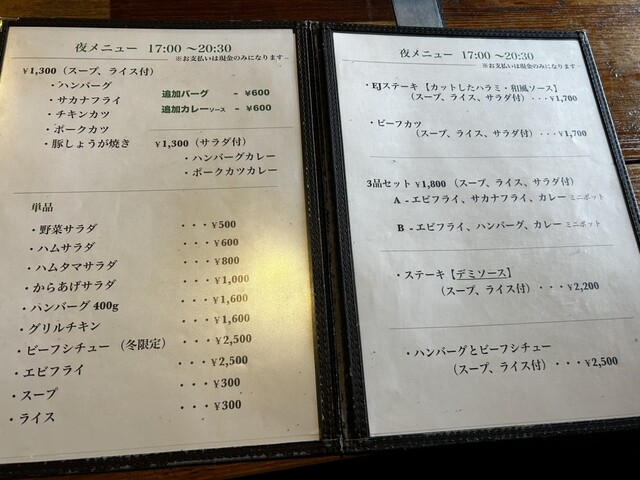 夜メニュー 17:00 ～20:30
※お支払いは現金のみになります
¥1,300（スープ、ライス付）
・ハンバーグ
・サカナフライ
・チキンカツ
・ポークカツ
・豚しょうが焼き
追加バーグ － ¥600
追加カレーソース － ¥600
¥1,300（サラダ付）
・ハンバーグカレー
・ポークカツカレー
単品
・野菜サラダ ・・・¥500
・ハムサラダ ・・・¥600
・ハムタマサラダ ・・・¥800
・からあげサラダ ・・・¥1,000
・ハンバーグ 400g ・・・¥1,600
・グリルチキン ・・・¥1,600
・ビーフシチュー（冬限定） ・・・¥2,500
・エビフライ ・・・¥2,500
・スープ ・・・¥300
・ライス ・・・¥300
夜メニュー 17:00 ～20:30
※お支払いは現金のみになります
・EJステーキ【カットしたハラミ・和風ソース】
（スープ、ライス、サラダ付）・・・¥1,700
・ビーフカツ
（スープ、ライス、サラダ付）・・・¥1,700
3品セット ¥1,800（スープ、ライス、サラダ付）
A - エビフライ、サカナフライ、カレー ミニポット
B - エビフライ、ハンバーグ、カレー ミニポット
・ステーキ【デミソース】
（スープ、ライス付）・・・¥2,200
・ハンバーグとビーフシチュー
（スープ、ライス付）・・・¥2,500